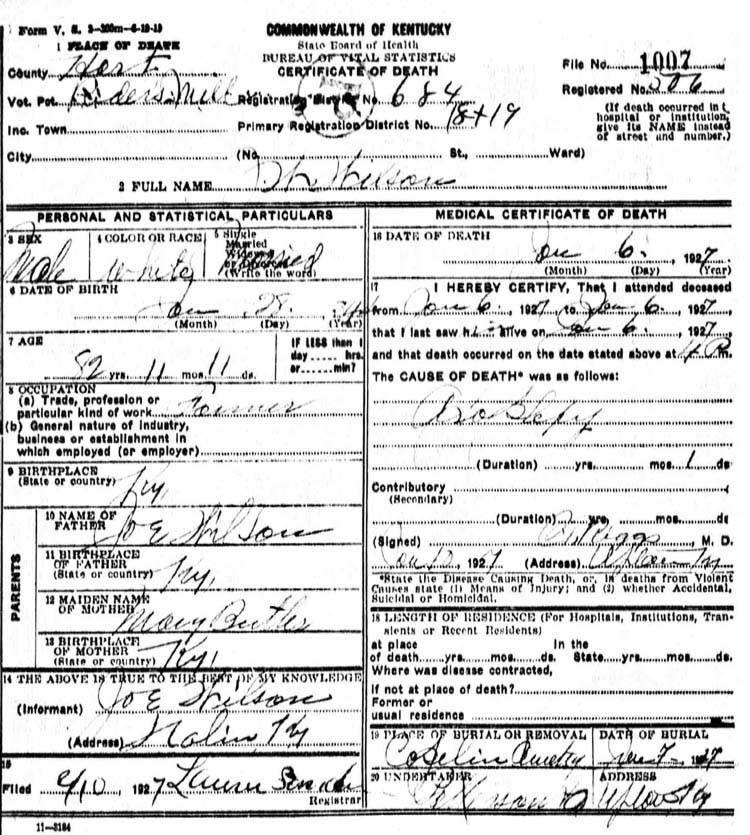 Form V. S. 3-200m-6-19-19
COMMONWEALTH OF KENTUCKY
State Board of Health
BUREAU OF VITAL STATISTICS
CERTIFICATE OF DEATH
1 PLACE OF DEATH
County Hart
Vot. Pct.
Inc. Town
City
Registration District No. 684
Primary Registration District No.
(No. St., Ward)
File No. 1007
Registered No.
(If death occurred in t
hospital or institution,
give its NAME instead
of street and number.)
2 FULL NAME Wilson
PERSONAL AND STATISTICAL PARTICULARS
3 SEX
Male
4 COLOR OR RACE
White
5 Single
Married
Widowed
or Divorced
(Write the word)
6 DATE OF BIRTH
Jan 28
(Month) (Day) (Year)
7 AGE
82 yrs. 11 mos. 11 ds.
IF LESS than 1
day ..... hrs.
or ..... min?
8 OCCUPATION
(a) Trade, profession or
particular kind of work Farmer
(b) General nature of industry,
business or establishment in
which employed (or employer)
9 BIRTHPLACE
(State or country) Ky
PARENTS
10 NAME OF
FATHER Joe Wilson
11 BIRTHPLACE
OF FATHER
(State or country) Ky.
12 MAIDEN NAME
OF MOTHER Mary Butler
13 BIRTHPLACE
OF MOTHER
(State or country) Ky.
14 THE ABOVE IS TRUE TO THE BEST OF MY KNOWLEDGE
(Informant) Joe Wilson
(Address) Ky
15
Filed 2/10 1927 Laura
Registrar
11-3184
MEDICAL CERTIFICATE OF DEATH
16 DATE OF DEATH
Jan 6, 1927
(Month) (Day) (Year)
17 I HEREBY CERTIFY, That I attended deceased
from Jan 6, 1927 to Jan 6, 1927
that I last saw him alive on Jan 6, 1927
and that death occurred on the date stated above at 4 P. m.
The CAUSE OF DEATH* was as follows:
(Duration) yrs. mos. 1 ds
Contributory
(Secondary)
(Duration) yrs. mos. ds
(Signed) Riggs, M. D.
Jan 1927 (Address) Ky
*State the Disease Causing Death, or, in deaths from Violent
Causes state (1) Means of Injury; and (2) whether Accidental,
Suicidal or Homicidal.
18 LENGTH OF RESIDENCE (For Hospitals, Institutions, Tran-
sients or Recent Residents)
at place In the
of death yrs. mos. ds. State yrs. mos. ds.
Where was disease contracted,
if not at place of death?
Former or
usual residence
19 PLACE OF BURIAL OR REMOVAL
Cemetery
DATE OF BURIAL
Jan 7 1927
20 UNDERTAKER
ADDRESS
Ky